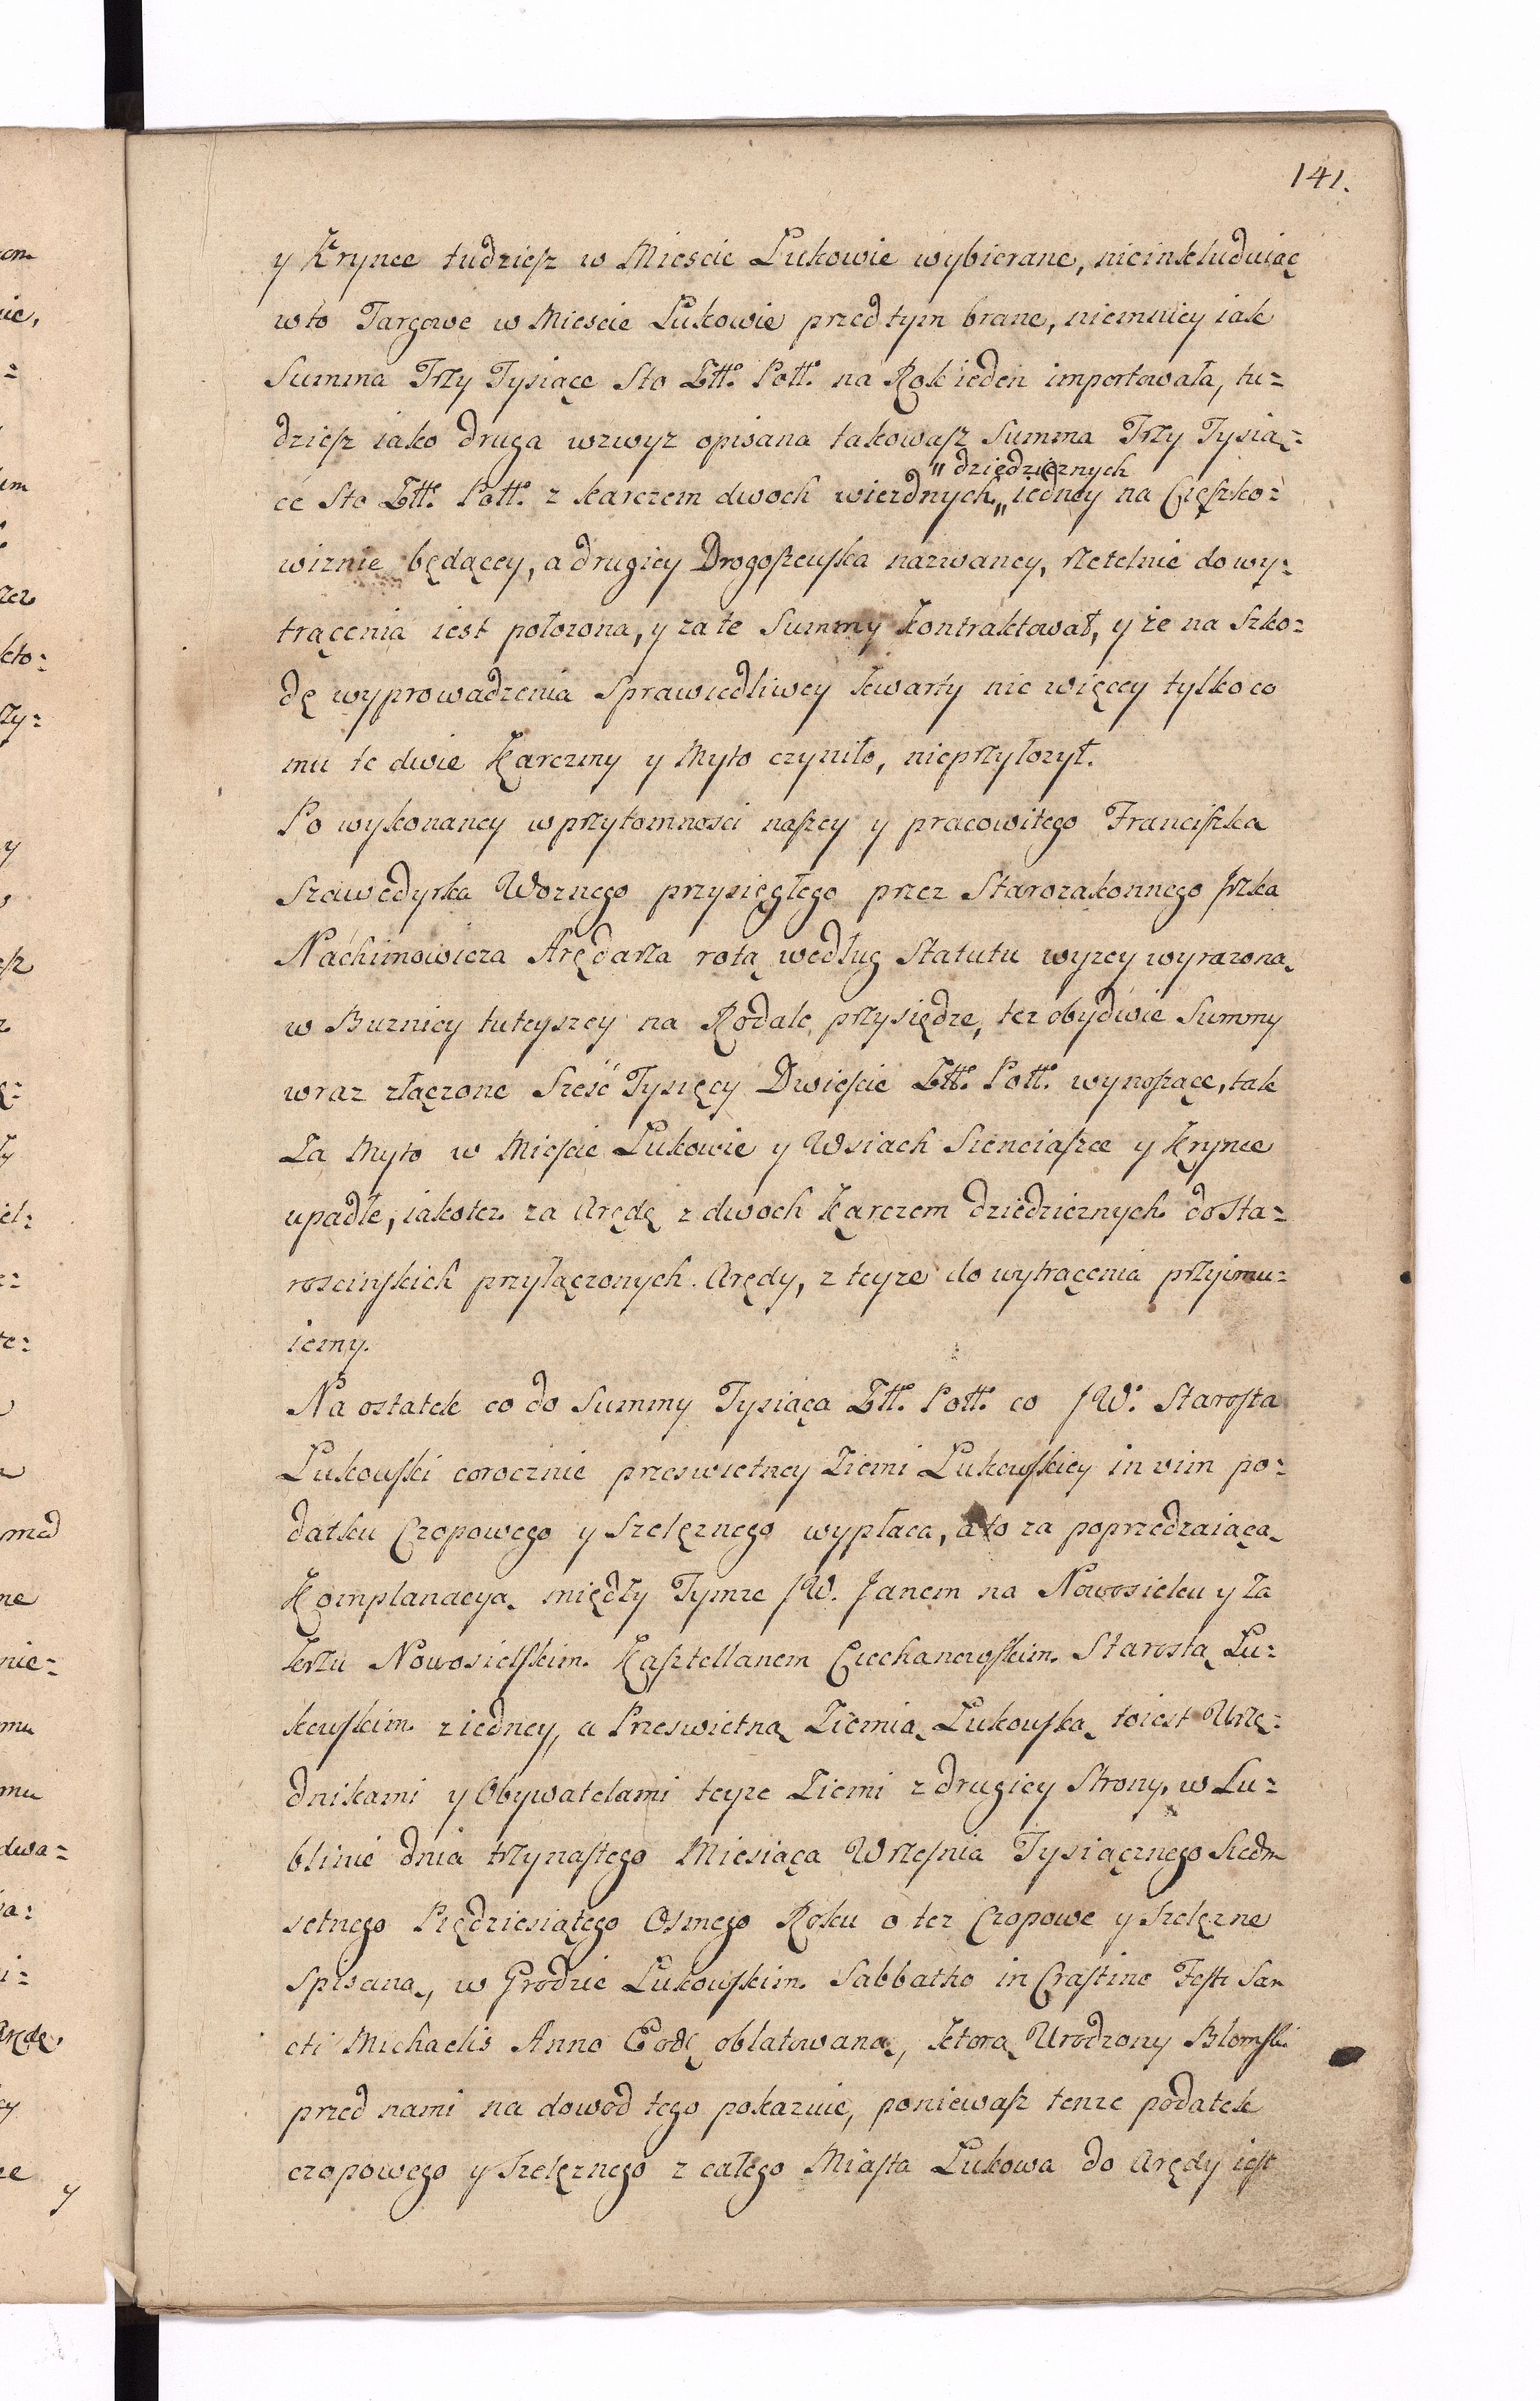 141.
y Krynce tudziesz w Miescie Łukowie wybierane, nieinkluduiąc
w to Targowe w Miescie Łukowie przed tym brane, niemniey iak
Summa Trzy Tysiące Sto Złł. Poll. na Rok ieden importowała, tu=
dziesz iako druga wzwyz opisana takowasz Summa Trzy Tysią=
" dziedzicznych
ce Sto Złł. Poll. z karczem dwoch wiezdnych " iedney na Cięszko=
wiznie będącey, a drugiey Drogoszewska nazwaney, rzetelnie do wy=
trącenia iest położona, y za te Summy kontraktował, y że na Szko=
dę wyprowadzenia Sprawiedliwey kwarty nic więcey tylko co
mu te dwie Karczmy y Myto czyniło, nieprzyłożył.
Po wykonaney w przytomności naszey y pracowitego Franciszka
Szawedyrka Woznego przysięgłego przez Starozakonnego Jrzka
Nachimowicza Arędarza rotą według Statutu wyzey wyrazoną
w Buznicy tuteyszey na Rodale, przysiędze, tez obydwie Summy
wraz złączone Sześć Tysięcy Dwieście Złł. Poll. wynoszące, tak
Za Myto w Mieście Łukowie y Wsiach Sienciaszce y Krynce
upadłe, iakotez za Arędę z dwoch Karczem dziedzicznych do Sta=
rościńskich przyłączonych. Arędy, z teyze do wytrącenia przyimu=
iemy.
Na ostatek co do Summy Tysiąca Złł. Poll. co JW. Starosta
Łukowski corocznie przeswietney Ziemi Łukowskiey in vim po=
datku Czopowego y Szelęznego wypłaca, a to za poprzedzaiącą
Komplanacyą między Tymze JW. Janem na Nowosielcu y Za
krzu Nowosielskim Kasztellanem Ciechanowskim Starostą Łu=
kowskim z iedney, a Przeswietną Ziemią Łukowską toiest Urzę=
dnikami y Obywatelami teyze Ziemi z drugiey Strony, w Lu=
blinie dnia trzynastego Miesiąca Września Tysiącznego Siedm
setnego Piędziesiątego Osmego Roku o tez Czopowe y Szelęzne
spisaną, w Grodzie Łukowskim Sabbatho in Crastino Festi San
cti Michaelis Anno Eode oblatowaną, ktorą Urodzony Błomski
przed nami na dowod tego pokazuie, poniewasz tenze podatek
czopowego y Szelęznego z całego Miasta Łukowa do Arędy iest